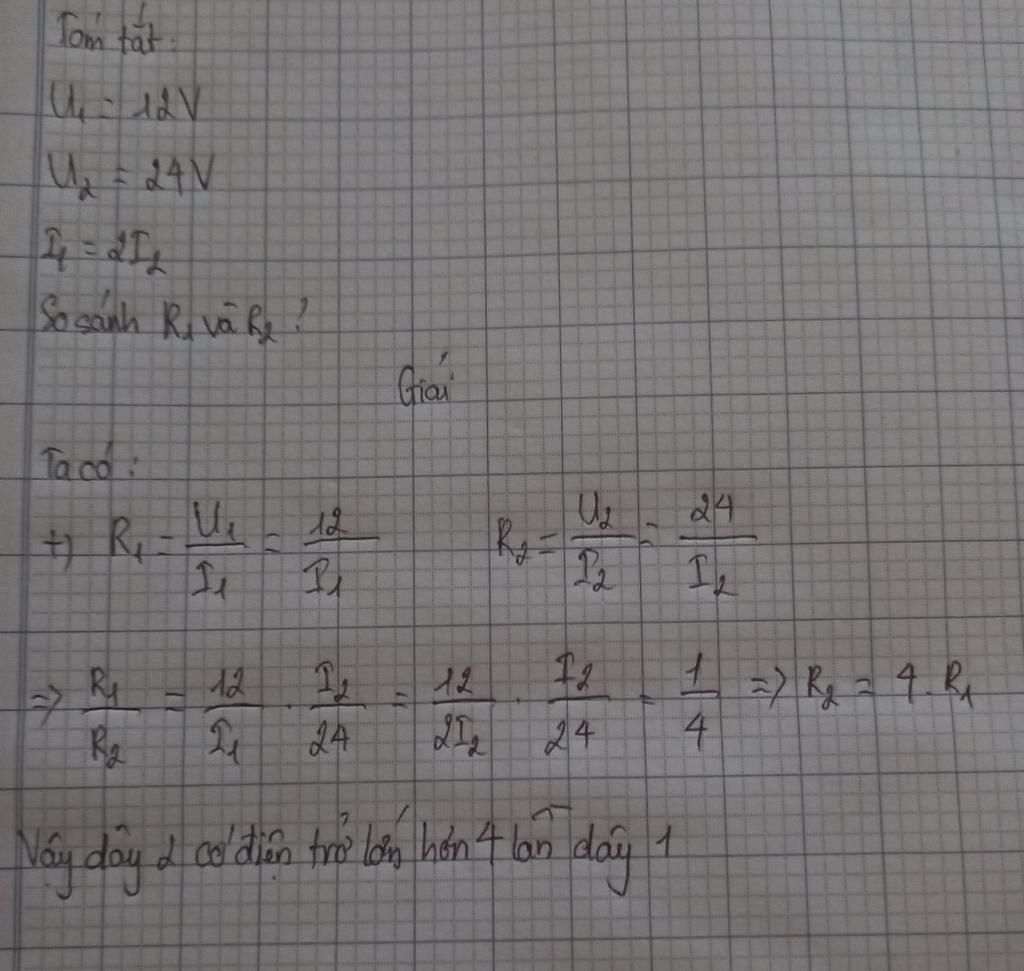 Tóm tắt:
U₁ = 12V
U₂ = 24V
I₁ = 2I₂
So sánh R₁ và R₂?
Giải
Ta có:
+) R₁ = U₁/I₁ = 12/I₁ R₂ = U₂/I₂ = 24/I₂
=> R₁/R₂ = 12/I₁ . I₂/24 = 12/2I₂ . I₂/24 = 1/4 => R₂ = 4.R₁
Vậy dây 2 có điện trở lớn hơn 4 lần dây 1